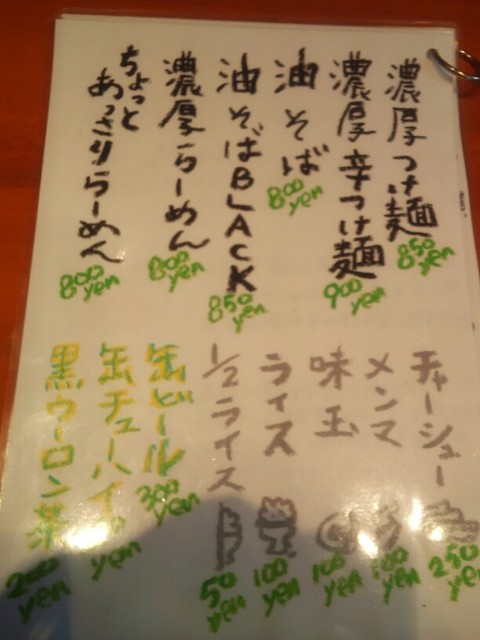 濃厚つけ麺 850 yen
濃厚辛つけ麺 900 yen
油そば 800 yen
油そばBLACK 850 yen
濃厚らーめん 800 yen
ちょっと
あっさりらーめん 800 yen
チャーシュー 250 yen
メンマ 100 yen
味玉 100 yen
ライス 100 yen
1/2ライス 50 yen
缶ビール 300 yen
缶チューハイ yen
黒ウーロン茶 200 yen